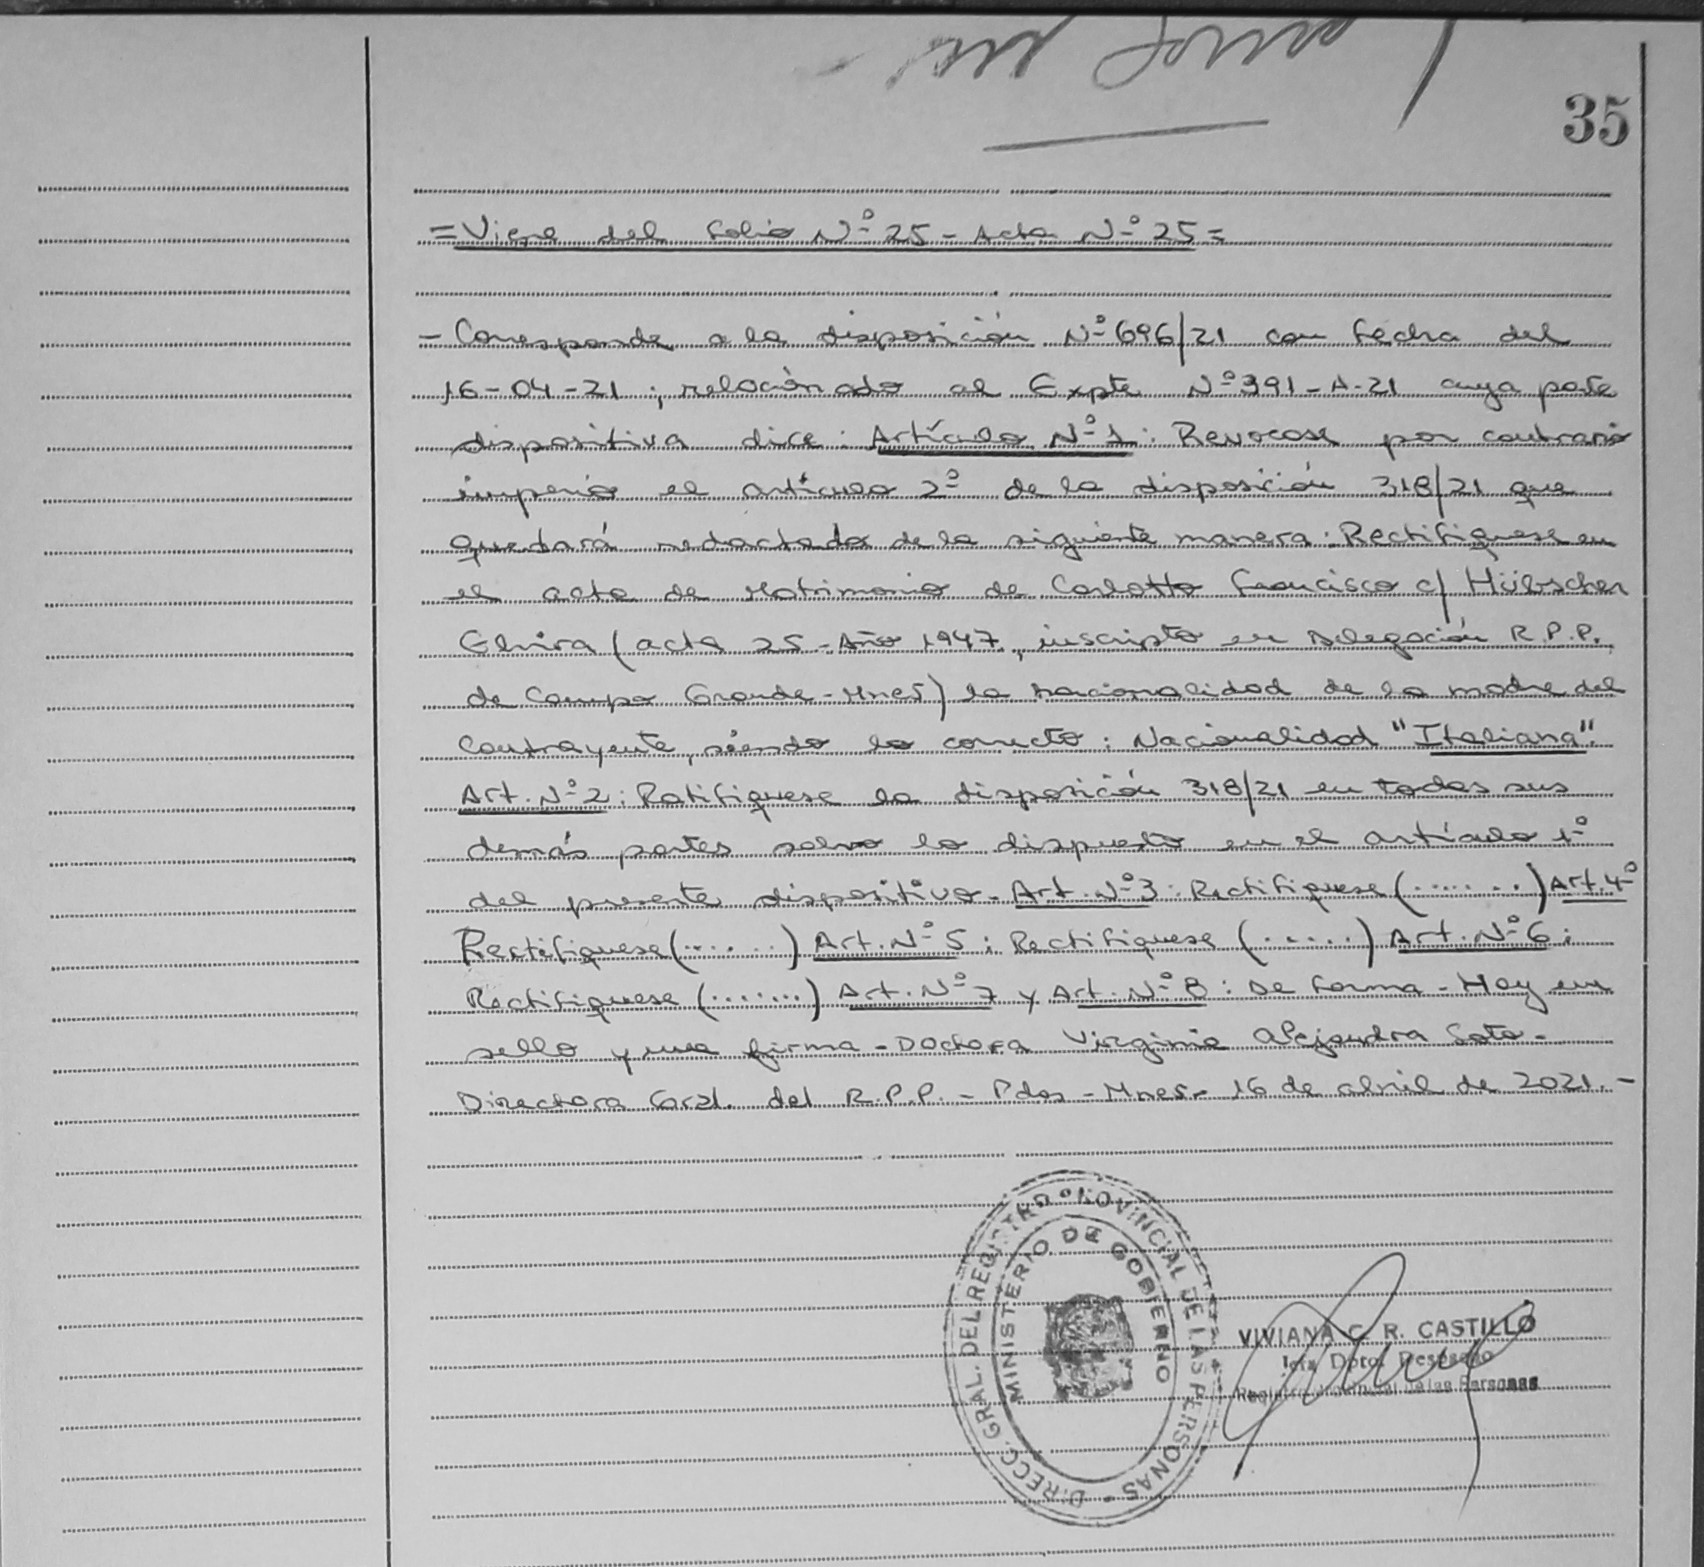 35
= Viene del folio Nº 25 - Acta Nº 25 =
- Corresponde a la disposición Nº 696/21 con fecha del
16-04-21 ; relacionado al Expte Nº 391-A-21 cuya parte
dispositiva dice : Artículo Nº 1 : Revocase por contrario
imperio el artículo 2º de la disposición 318/21 que
quedará redactado de la siguiente manera : Rectifiquese en
el acta de Matrimonio de Carlotto Francisco c/ Hübscher
Elvira (acta 25 - Año 1947, inscripto en Delegación R.P.P.
de Campo Grande - Mnes) la nacionalidad de la madre del
contrayente, siendo lo correcto : Nacionalidad "Italiana".
Art. Nº 2 : Ratifiquese la disposición 318/21 en todas sus
demás partes salvo lo dispuesto en el artículo 1º
del presente dispositivo - Art. Nº 3 : Rectifiquese (.......) Art. 4º
Rectifiquese (.......) Art. Nº 5 : Rectifiquese (.....) Art. Nº 6 :
Rectifiquese (.......) Art. Nº 7 y Art. Nº 8 : De forma - Hay un
sello y una firma - Doctora Virginia Alejandra Soto -
Directora Gral. del R.P.P. - Pdas - Mnes - 16 de abril de 2021. -
DIRECC. GRAL. DEL REGISTRO PROVINCIAL DE LAS PERSONAS
MINISTERIO DE GOBIERNO
VIVIANA C. R. CASTILLO
Jefa Dpto. Despacho
Registro Provincial de las Personas